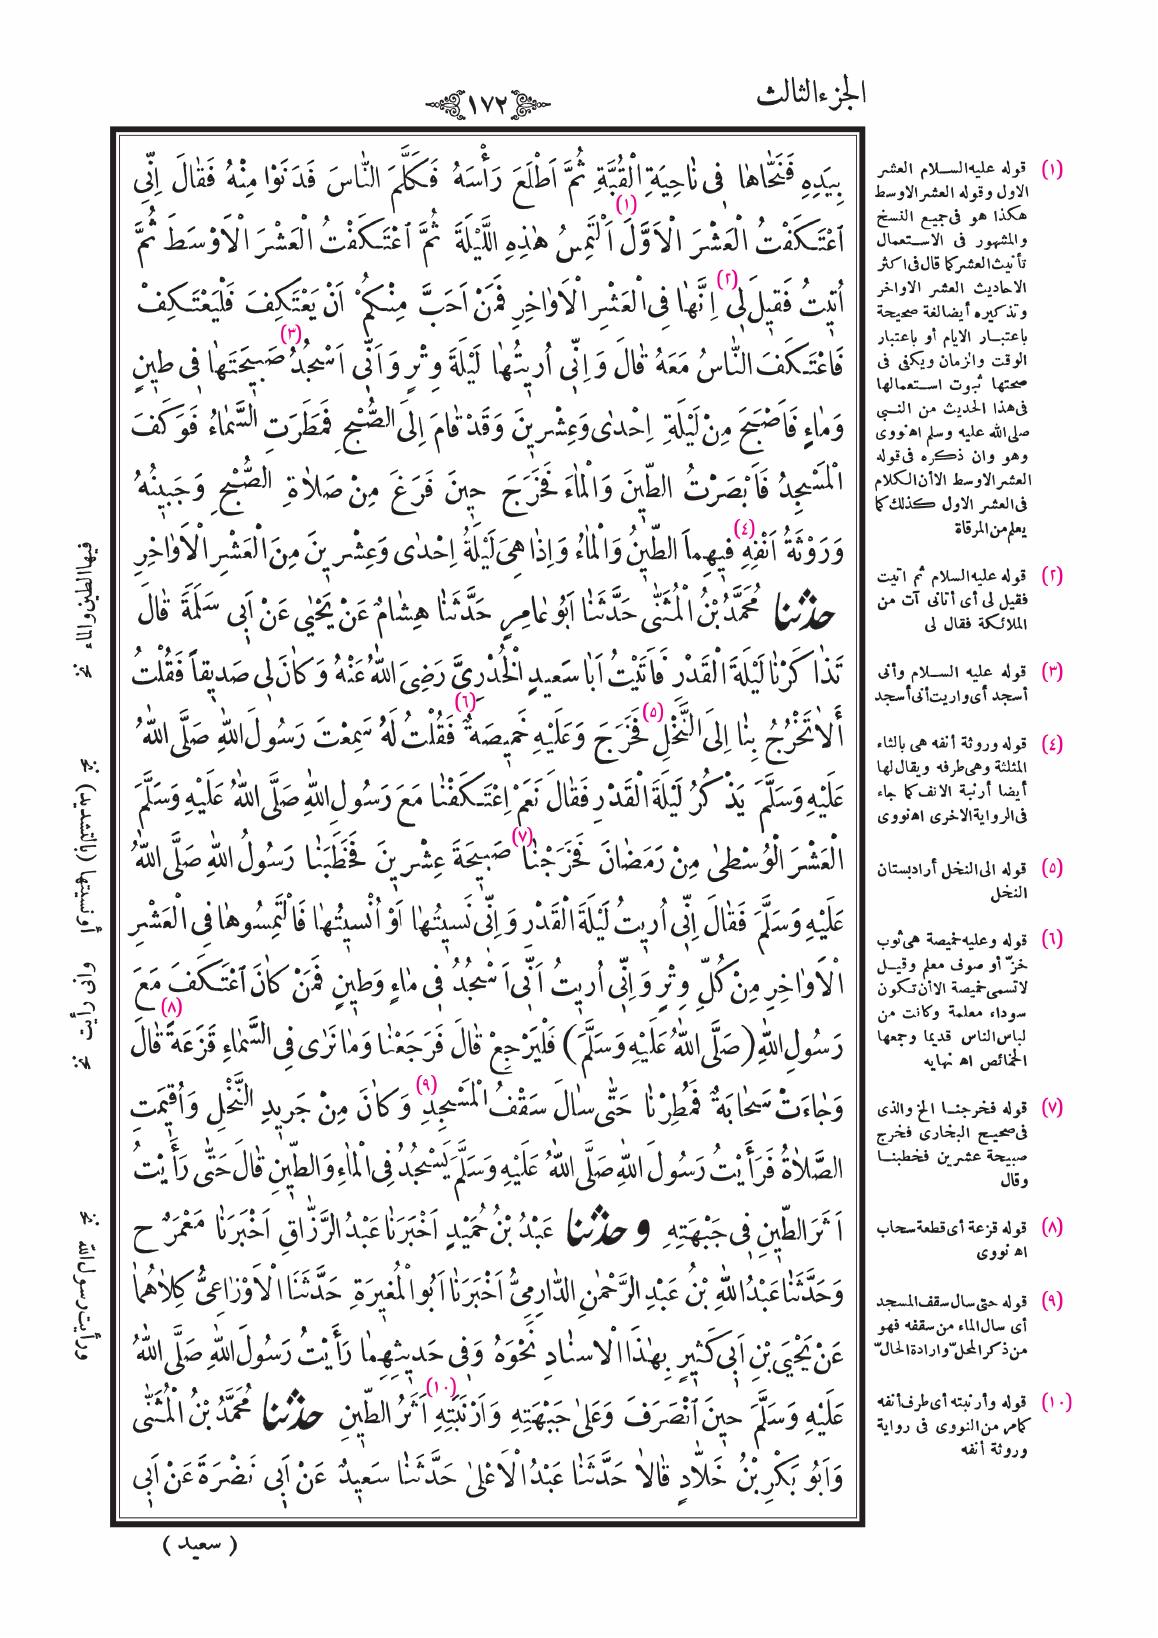 الجزء الثالث
١٧٢
بِيَدِهِ فَنَحَّاهَا فِى نَاحِيَةِ الْقُبَّةِ ثُمَّ اَطْلَعَ رَأْسَهُ فَكَلَّمَ النَّاسَ فَدَنَوْا مِنْهُ فَقَالَ اِنِّى
اعْتَكَفْتُ الْعَشْرَ الْاَوَّلَ (١) اَلْتَمِسُ هٰذِهِ اللَّيْلَةَ ثُمَّ اعْتَكَفْتُ الْعَشْرَ الْاَوْسَطَ ثُمَّ
اُتِيتُ فَقِيلَ لِى (٢) اِنَّهَا فِى الْعَشْرِ الْاَوَاخِرِ فَمَنْ اَحَبَّ مِنْكُمْ اَنْ يَعْتَكِفَ فَلْيَعْتَكِفْ
فَاعْتَكَفَ النَّاسُ مَعَهُ قَالَ وَاِنِّى اُرِيتُهَا لَيْلَةَ وِتْرٍ وَاَنِّى اَسْجُدُ (٣) صَبِيحَتَهَا فِى طِينٍ
وَمَاءٍ فَاَصْبَحَ مِنْ لَيْلَةِ اِحْدٰى وَعِشْرِينَ وَقَدْ قَامَ اِلَى الصُّبْحِ فَمَطَرَتِ السَّمَاءُ فَوَكَفَ
الْمَسْجِدُ فَاَبْصَرْتُ الطِّينَ وَالْمَاءَ فَخَرَجَ حِينَ فَرَغَ مِنْ صَلَاةِ الصُّبْحِ وَجَبِينُهُ
وَرَوْثَةُ اَنْفِهِ (٤) فِيهِمَا الطِّينُ وَالْمَاءُ وَاِذَا هِىَ لَيْلَةُ اِحْدٰى وَعِشْرِينَ مِنَ الْعَشْرِ الْاَوَاخِرِ
حدثنا مُحَمَّدُ بْنُ الْمُثَنّٰى حَدَّثَنَا اَبُو عَامِرٍ حَدَّثَنَا هِشَامٌ عَنْ يَحْيٰى عَنْ اَبِى سَلَمَةَ قَالَ
تَذَاكَرْنَا لَيْلَةَ الْقَدْرِ فَاَتَيْتُ اَبَا سَعِيدٍ الْخُدْرِىَّ رَضِىَ اللّٰهُ عَنْهُ وَكَانَ لِى صَدِيقاً فَقُلْتُ
أَلَا تَخْرُجُ بِنَا اِلَى النَّخْلِ (٥) فَخَرَجَ وَعَلَيْهِ خَمِيصَةٌ (٦) فَقُلْتُ لَهُ سَمِعْتَ رَسُولَ اللّٰهِ صَلَّى اللّٰهُ
عَلَيْهِ وَسَلَّمَ يَذْكُرُ لَيْلَةَ الْقَدْرِ فَقَالَ نَعَمْ اِعْتَكَفْنَا مَعَ رَسُولِ اللّٰهِ صَلَّى اللّٰهُ عَلَيْهِ وَسَلَّمَ
الْعَشْرَ الْوُسْطٰى مِنْ رَمَضَانَ فَخَرَجْنَا (٧) صَبِيحَةَ عِشْرِينَ فَخَطَبَنَا رَسُولُ اللّٰهِ صَلَّى اللّٰهُ
عَلَيْهِ وَسَلَّمَ فَقَالَ اِنِّى اُرِيتُ لَيْلَةَ الْقَدْرِ وَاِنِّى نَسِيتُهَا اَوْ اُنْسِيتُهَا فَالْتَمِسُوهَا فِى الْعَشْرِ
الْاَوَاخِرِ مِنْ كُلِّ وِتْرٍ وَاِنِّى اُرِيتُ اَنِّى اَسْجُدُ فِى مَاءٍ وَطِينٍ فَمَنْ كَانَ اعْتَكَفَ مَعَ
رَسُولِ اللّٰهِ (صَلَّى اللّٰهُ عَلَيْهِ وَسَلَّمَ) فَلْيَرْجِعْ قَالَ فَرَجَعْنَا وَمَا نَرٰى فِى السَّمَاءِ قَزَعَةً (٨) قَالَ
وَجَاءَتْ سَحَابَةٌ فَمُطِرْنَا حَتّٰى سَالَ سَقْفُ الْمَسْجِدِ (٩) وَكَانَ مِنْ جَرِيدِ النَّخْلِ وَاُقِيمَتِ
الصَّلَاةُ فَرَأَيْتُ رَسُولَ اللّٰهِ صَلَّى اللّٰهُ عَلَيْهِ وَسَلَّمَ يَسْجُدُ فِى الْمَاءِ وَالطِّينِ قَالَ حَتّٰى رَأَيْتُ
اَثَرَ الطِّينِ فِى جَبْهَتِهِ وحدثنا عَبْدُ بْنُ حُمَيْدٍ اَخْبَرَنَا عَبْدُ الرَّزَّاقِ اَخْبَرَنَا مَعْمَرٌ ح
وَحَدَّثَنَا عَبْدُ اللّٰهِ بْنُ عَبْدِ الرَّحْمٰنِ الدَّارِمِىُّ اَخْبَرَنَا اَبُو الْمُغِيرَةِ حَدَّثَنَا الْاَوْزَاعِىُّ كِلَاهُمَا
عَنْ يَحْيَى بْنِ اَبِى كَثِيرٍ بِهٰذَا الْاِسْنَادِ نَحْوَهُ وَفِى حَدِيثِهِمَا رَأَيْتُ رَسُولَ اللّٰهِ صَلَّى اللّٰهُ
عَلَيْهِ وَسَلَّمَ حِينَ انْصَرَفَ وَعَلٰى جَبْهَتِهِ وَاَرْنَبَتِهِ (١٠) اَثَرُ الطِّينِ حدثنا مُحَمَّدُ بْنُ الْمُثَنّٰى
وَاَبُو بَكْرِ بْنُ خَلَّادٍ قَالَا حَدَّثَنَا عَبْدُ الْاَعْلٰى حَدَّثَنَا سَعِيدٌ عَنْ اَبِى نَضْرَةَ عَنْ اَبِى
( سعيد )
(١) قوله عليه السلام العشر
الاول وقوله العشر الاوسط
هكذا هو فى جميع النسخ
والمشهور فى الاستعمال
تأنيث العشر كما قال فى اكثر
الاحاديث العشر الاواخر
وتذكيره أيضا لغة صحيحة
باعتبار الايام أو باعتبار
الوقت والزمان ويكفى فى
صحتها ثبوت استعمالها
فى هذا الحديث من النبى
صلى الله عليه وسلم اه نووى
وهو وان ذكره فى قوله
العشر الاوسط الا أن الكلام
فى العشر الاول كذلك كما
يعلم من المرقاة
(٢) قوله عليه السلام ثم اتيت
فقيل لى أى أتانى آت من
الملائكة فقال لى
(٣) قوله عليه السلام وأنى
أسجد أى واريت أنى أسجد
(٤) قوله وروثة أنفه هى بالثاء
المثلثة وهى طرفه ويقال لها
أيضا أرنبة الانف كما جاء
فى الرواية الاخرى اه نووى
(٥) قوله الى النخل أراد بستان
النخل
(٦) قوله وعليه خميصة هى ثوب
خزّ أو صوف معلم وقيل
لا تسمى خميصة الا أن تكون
سوداء معلمة وكانت من
لباس الناس قديما وجمعها
الخمائص اه نهايه
(٧) قوله فخرجنا الخ والذى
فى صحيح البخارى فخرج
صبيحة عشرين فخطبنا
وقال
(٨) قوله قزعة أى قطعة سحاب
اه نووى
(٩) قوله حتى سال سقف المسجد
أى سال الماء من سقفه فهو
من ذكر المحلّ وارادة الحالّ
(١٠) قوله وأرنبته أى طرف أنفه
كما مر من النووى فى رواية
وروثة أنفه
فيها الطين والماء نخ
أو نسيتها (بالتشديد) نخ
وانى رأيت نخ
ورأيت رسول الله نخ